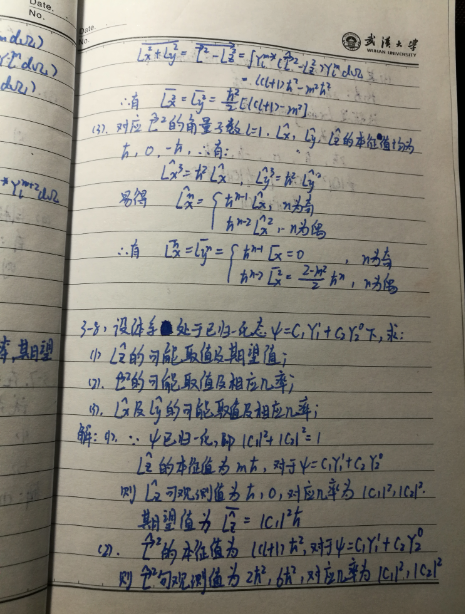 Date.
No.
Date.
No.
武汉大学
WUHAN UNIVERSITY
mdΩ)
Y_l^m dΩ)
dΩ)
* Y_l^{m+2} dΩ
率,其期望
\overline{L_x^2+L_y^2} = \overline{\hat{L}^2-L_z^2} = ∫Y_l^{m*}(\hat{L}^2-L_z^2)Y_l^m dΩ
= l(l+1)ħ²-m²ħ²
∴有 \overline{L_x^2}=\overline{L_y^2}=ħ²/2[l(l+1)-m²]
(3). 对应 \hat{L}²的角量子数l=1. \hat{L_x}, \hat{L_y}, \hat{L_z}的本征值均为
ħ, 0, -ħ, ∴有:
\hat{L_x}³=ħ²\hat{L_x}, \hat{L_y}³=ħ²\hat{L_y}
易得 \hat{L_x}^n = { ħ^{n-1}\hat{L_x}, n为奇
ħ^{n-2}\hat{L_x}², n为偶
∴有 \overline{L_x^n}=\overline{L_y^n}= { ħ^{n-1}\overline{L_x}=0, n为奇
ħ^{n-2}\overline{L_x^2}=\frac{2-m²}{2}ħ^n, n为偶
3-8, 设体系处于已归一化态 ψ=C₁Y₁¹+C₂Y₂⁰下,求:
(1) \hat{L_z}的可能取值及期望值;
(2). \hat{L}²的可能取值及相应几率;
(3). \hat{L_x}及\hat{L_y}的可能取值及相应几率;
解: (1). ∵ ψ已归一化,即 |C₁|²+|C₂|²=1
\hat{L_z}的本征值为mħ, 对于ψ=C₁Y₁¹+C₂Y₂⁰
则\hat{L_z}可观测值为ħ, 0, 对应几率为|C₁|², |C₂|².
期望值为\overline{L_z}=|C₁|²ħ
(2). \hat{L}²的本征值为l(l+1)ħ², 对于ψ=C₁Y₁¹+C₂Y₂⁰
则\hat{L}²可观测值为2ħ², 6ħ², 对应几率为|C₁|², |C₂|²